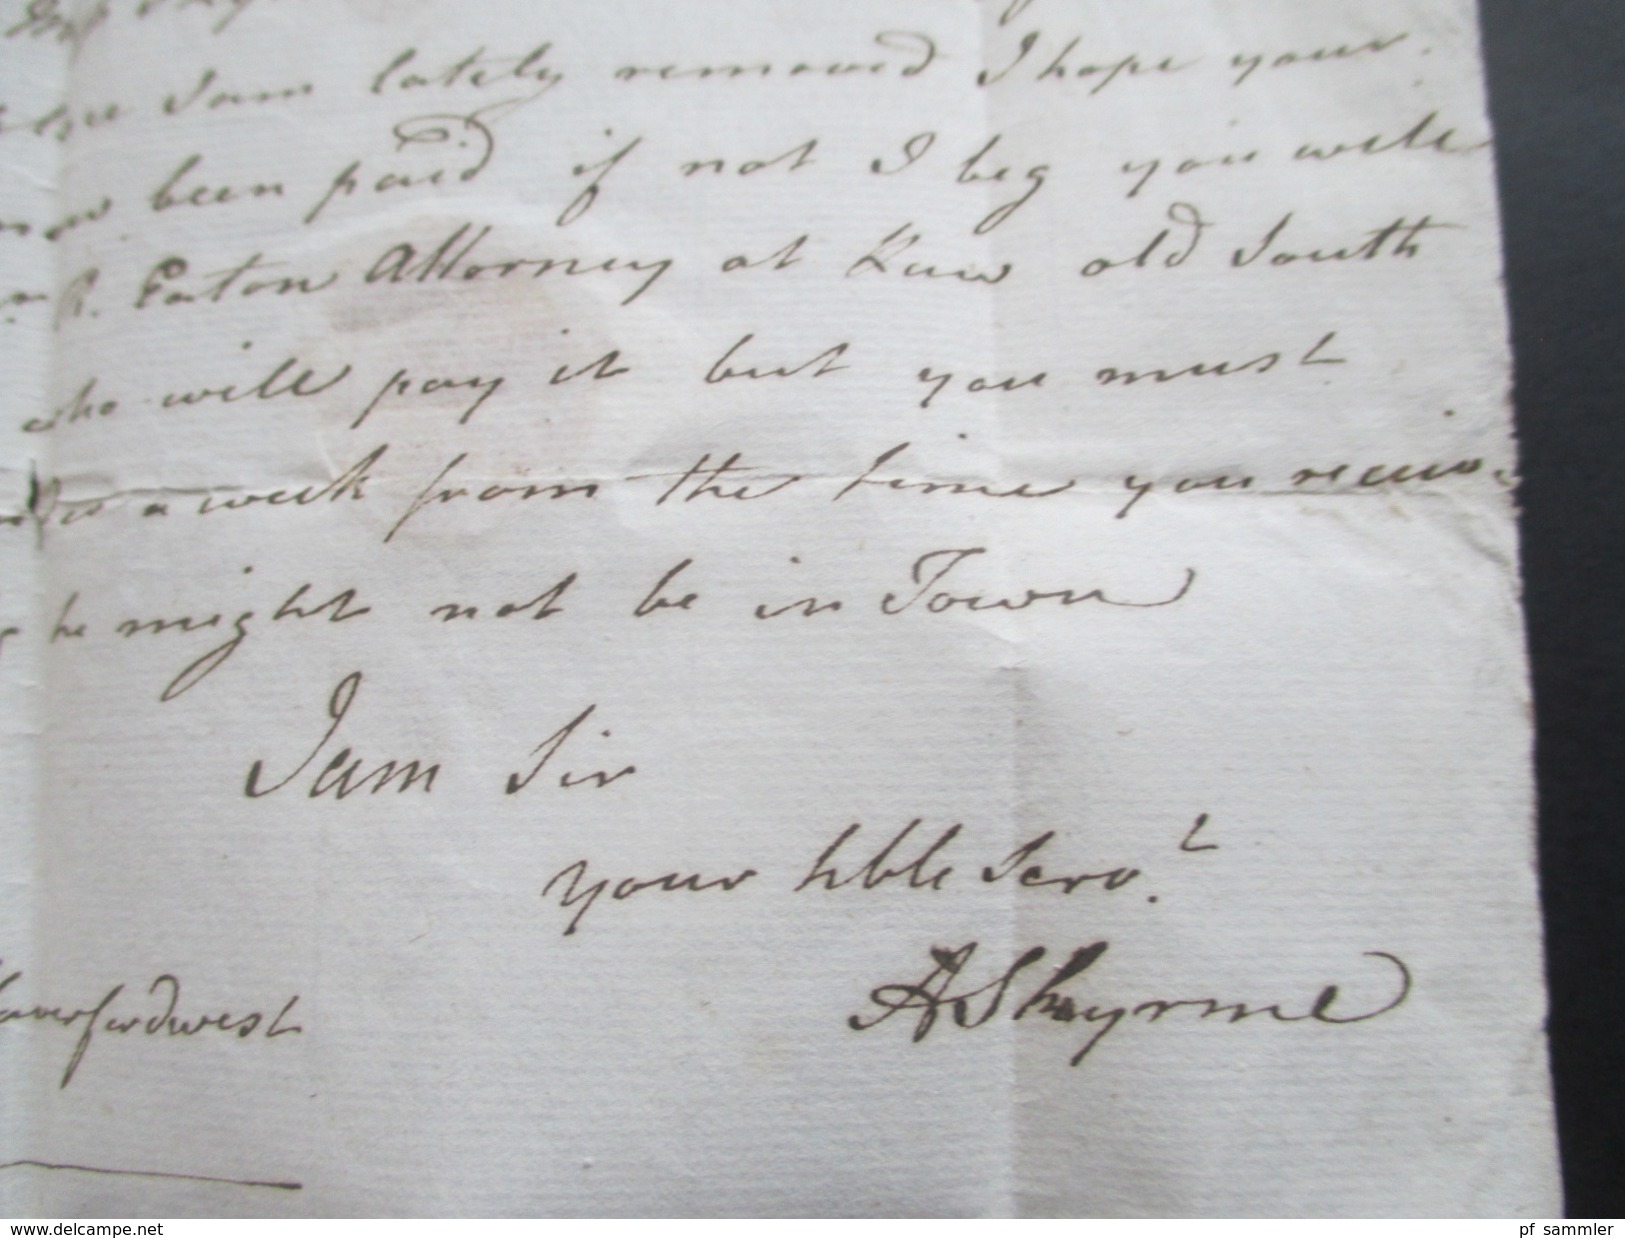 I am lately removed I hope your
been paid if not I beg you will
R. Eaton Attorney at Law old South
who will pay it but you must
a week from the time you receive
he might not be in Town
I am Sir
your hble Serv.t
A Skyrme
Haverfordwest
www.delcampe.net
pf_sammler